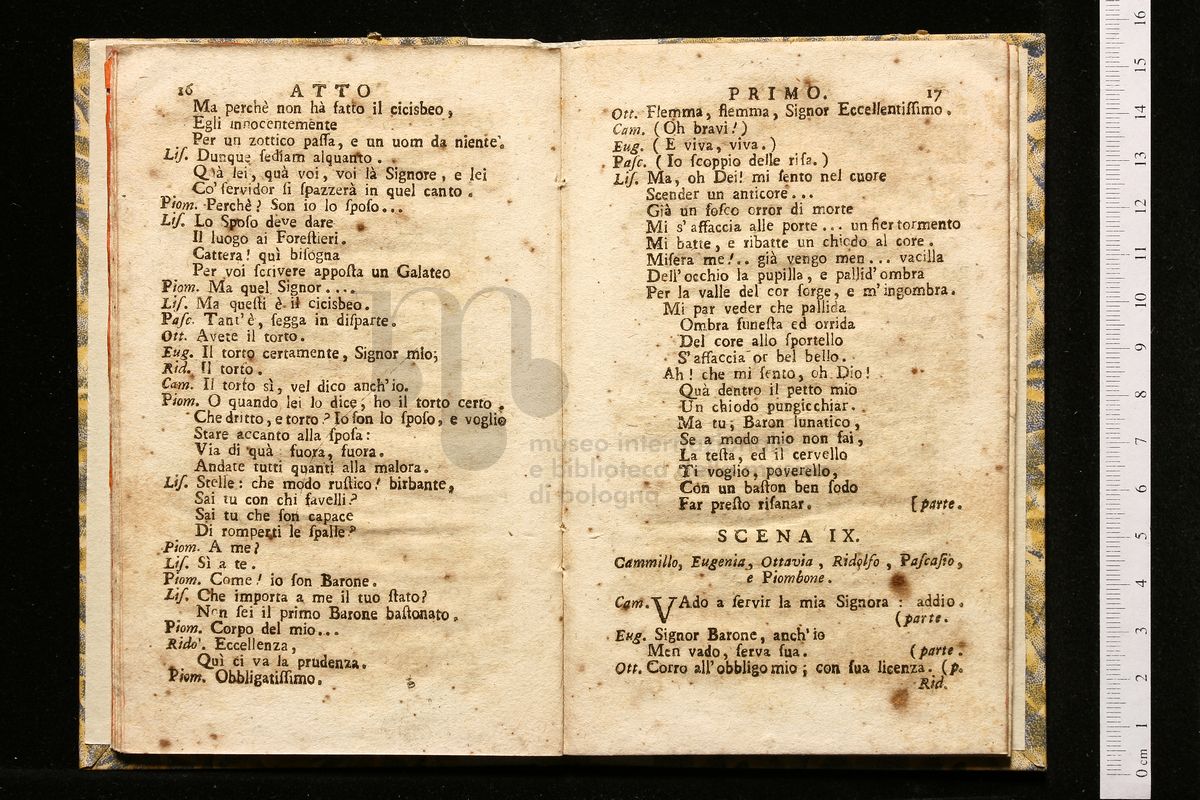 16 ATTO
Ma perchè non hà fatto il cicisbeo,
Egli innocentemente
Per un zottico paſſa, e un uom da niente.
Liſ. Dunque ſediam alquanto.
Quà lei, quà voi, voi là Signore, e lei
Co' ſervidor ſi ſpazzerà in quel canto.
Piom. Perchè? Son io lo ſpoſo...
Liſ. Lo Spoſo deve dare
Il luogo ai Foreſtieri.
Cattera! quì biſogna
Per voi ſcrivere appoſta un Galateo
Piom. Ma quel Signor....
Liſ. Ma queſti è il cicisbeo.
Paſc. Tant'è, ſegga in diſparte.
Ott. Avete il torto.
Eug. Il torto certamente, Signor mio;
Rid. Il torto.
Cam. Il torto sì, vel dico anch'io.
Piom. O quando lei lo dice, ho il torto certo,
Che dritto, e torto? Io ſon lo ſpoſo, e voglio
Stare accanto alla ſpoſa:
Via di quà: fuora, fuora.
Andate tutti quanti alla malora.
Liſ. Stelle: che modo ruſtico! birbante,
Sai tu con chi favelli?
Sai tu che ſon capace
Di romperti le ſpalle?
Piom. A me?
Liſ. Sì a te.
Piom. Come! io ſon Barone.
Liſ. Che importa a me il tuo ſtato?
Non ſei il primo Barone baſtonato.
Piom. Corpo del mio...
Rido. Eccellenza,
Quì ci va la prudenza.
Piom. Obbligatiſſimo.
PRIMO. 17
Ott. Flemma, flemma, Signor Eccellentiſſimo.
Cam. (Oh bravi!)
Eug. (E viva, viva.)
Paſc. (Io ſcoppio delle riſa.)
Liſ. Ma, oh Dei! mi ſento nel cuore
Scender un anticore...
Già un foſco orror di morte
Mi s'affaccia alle porte... un fier tormento
Mi batte, e ribatte un chiodo al core.
Miſera me!.. già vengo men... vacilla
Dell'occhio la pupilla, e pallid'ombra
Per la valle del cor ſorge, e m'ingombra.
Mi par veder che pallida
Ombra funeſta ed orrida
Del core allo ſportello
S'affaccia or bel bello.
Ah! che mi ſento, oh Dio!
Quà dentro il petto mio
Un chiodo pungicchiar.
Ma tu, Baron lunatico,
Se a modo mio non fai,
La teſta, ed il cervello
Ti voglio, poverello,
Con un baſton ben ſodo
Far preſto riſanar. [parte.
SCENA IX.
Cammillo, Eugenia, Ottavia, Ridolfo, Paſcaſio,
e Piombone.
Cam. VAdo a ſervir la mia Signora: addio.
(parte.
Eug. Signor Barone, anch'io
Men vado, ſerva ſua. (parte.
Ott. Corro all'obbligo mio; con ſua licenza. (p.
Rid.
museo inter
e biblioteca
di bologna
0 cm 1 2 3 4 5 6 7 8 9 10 11 12 13 14 15 16